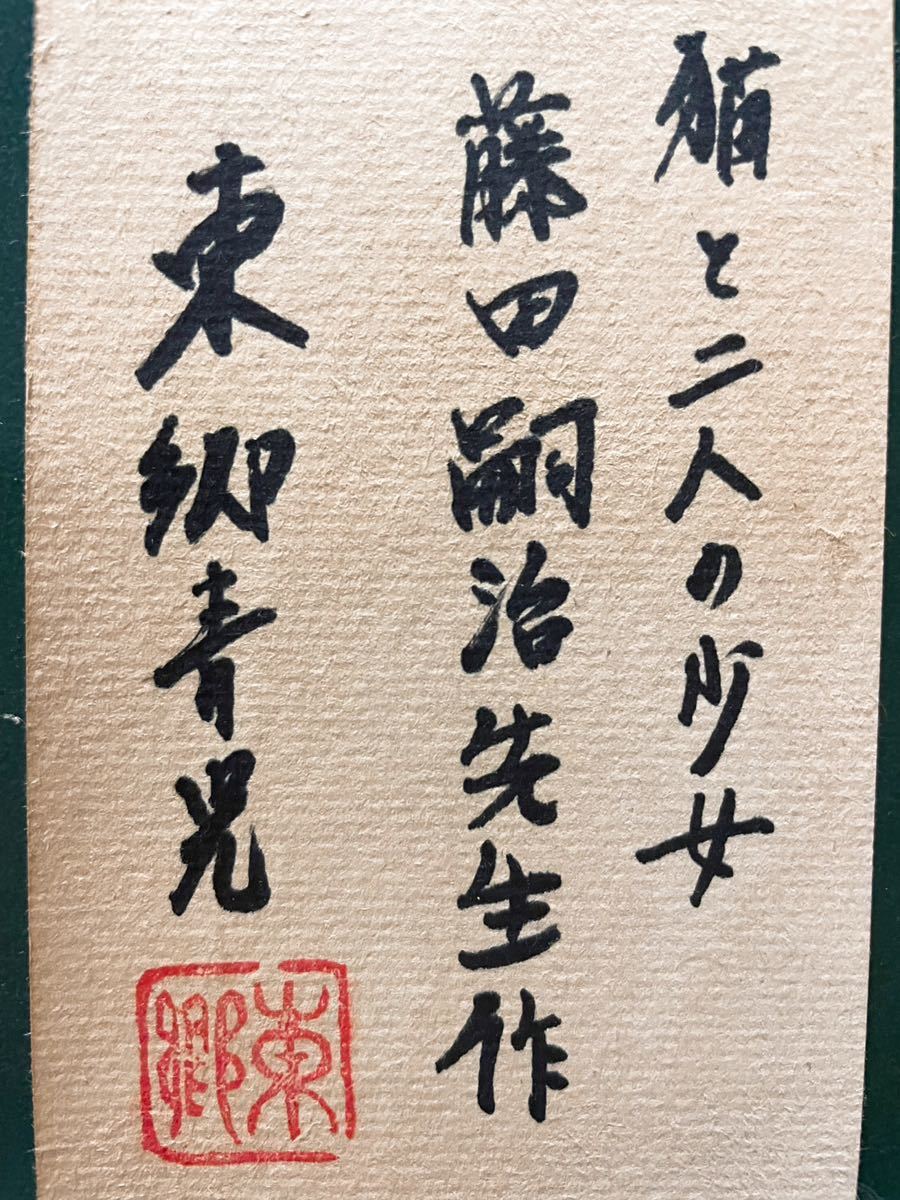 猫と二人の少女
藤田嗣治先生作
東郷青児
東郷